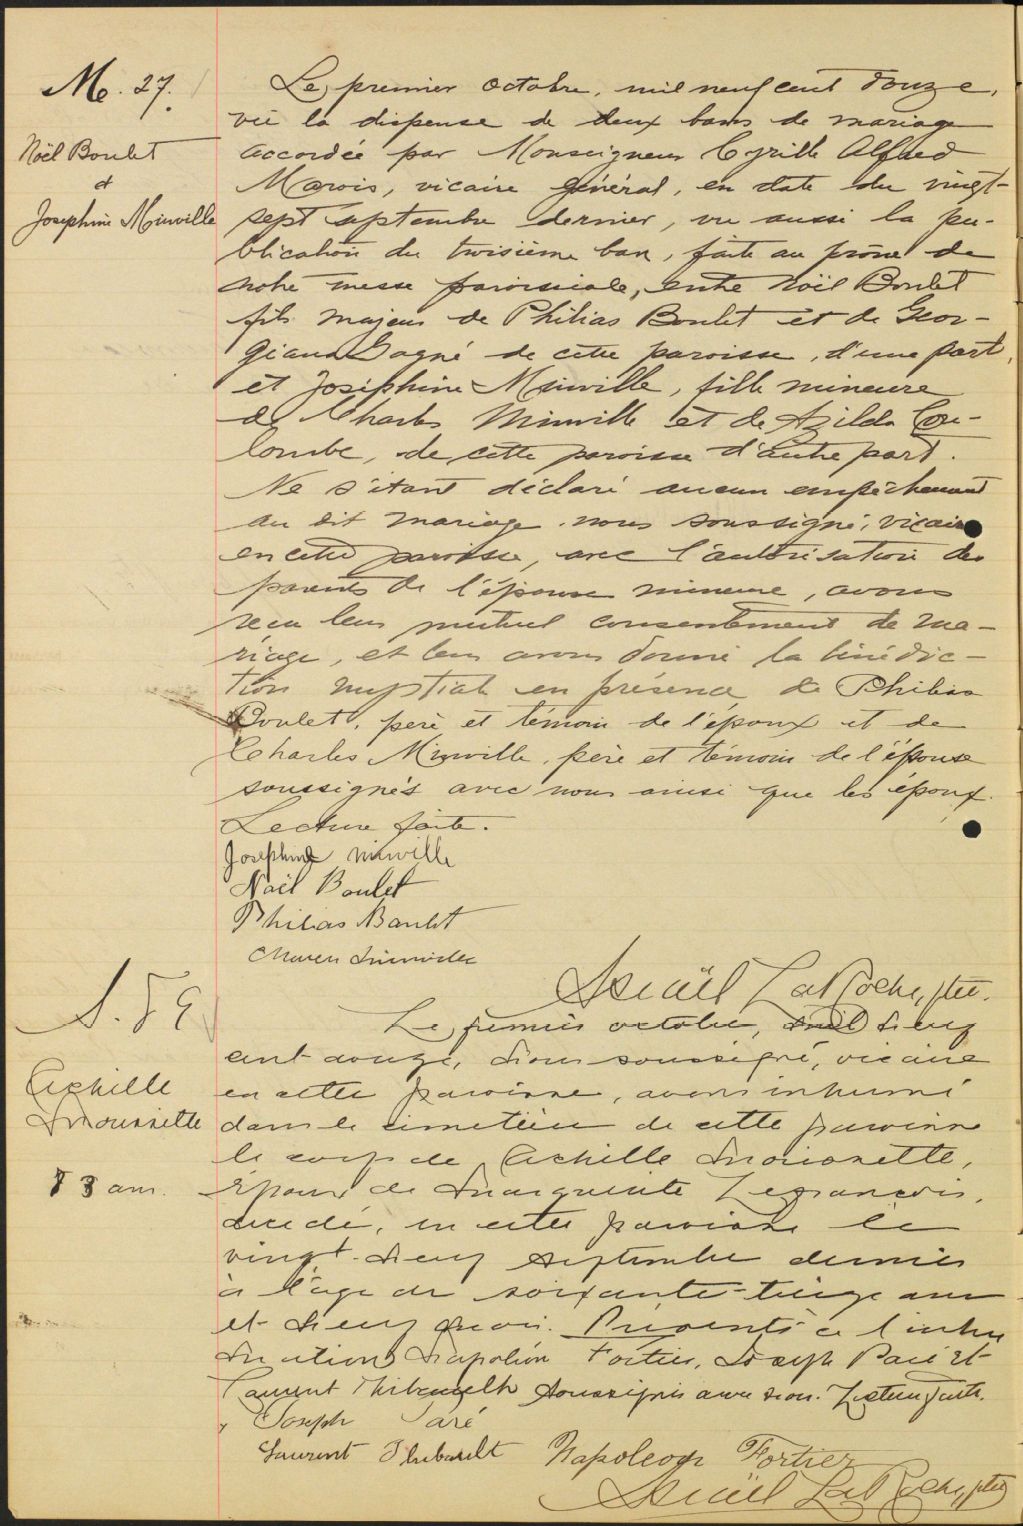 M. 27.
Noël Boulet
et
Joséphine Minville
Le premier octobre, mil neuf cent douze,
vu la dispense de deux bans de mariage
accordée par Monseigneur Cyrille Alfred
Marois, vicaire général, en date du vingt-
sept septembre dernier, vu aussi la pu-
blication du troisième ban, faite au prône de
notre messe paroissiale, entre Noël Boulet
fils majeur de Philias Boulet et de Geor-
giana Gagné de cette paroisse, d'une part,
et Joséphine Minville, fille mineure
de Charles Minville et de Azilda Cou-
lombe, de cette paroisse d'autre part.
Ne s'étant déclaré aucun empêchement
au dit mariage, nous soussigné, vicaire
en cette paroisse, avec l'autorisation des
parents de l'épouse mineure, avons
reçu leur mutuel consentement de ma-
riage, et leur avons donné la bénédic-
tion nuptiale en présence de Philias
Boulet, père et témoin de l'époux et de
Charles Minville, père et témoin de l'épouse
soussignés avec nous ainsi que les époux.
Lecture faite.
Josephine minville
Noël Boulet
Philias Boulet
LaRoche, ptre.
S.
Achille
Moussette
73 ans.
Le premier octobre, mil neuf
cent douze, nous soussigné, vicaire
en cette paroisse, avons inhumé
dans le cimetière de cette paroisse
le corps de Achille Moussette,
époux de Marguerite Lefrançois,
décédé, en cette paroisse le
vingt-neuf septembre dernier
à l'âge de soixante-treize ans
et neuf mois. Présents à l'inhu
mation Napoléon Fortier, Joseph Paré et
Laurent Thibeault soussignés avec nous. Lecture faite.
Joseph Paré
Laurent Thibault Napoleon Fortier
LaRoche, ptre